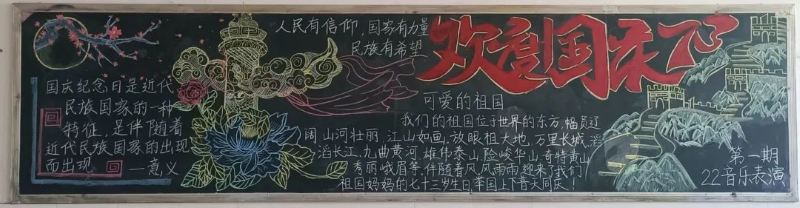 国庆纪念日是近代
民族国家的一种
特征，是伴随着
近代民族国家的出现
而出现
—意义
人民有信仰，国家有力量
民族有希望
欢度国庆
可爱的祖国
我们的祖国位于世界的东方，幅员辽
阔山河壮丽，江山如画，放眼祖大地，万里长城，滔
滔长江，九曲黄河，雄伟泰山，险峻华山，奇特黄山
秀丽峨眉等，伴随着风风雨雨迎来了我们
祖国妈妈的七十三岁生日，举国上下普天同庆！
第一期
22音乐表演